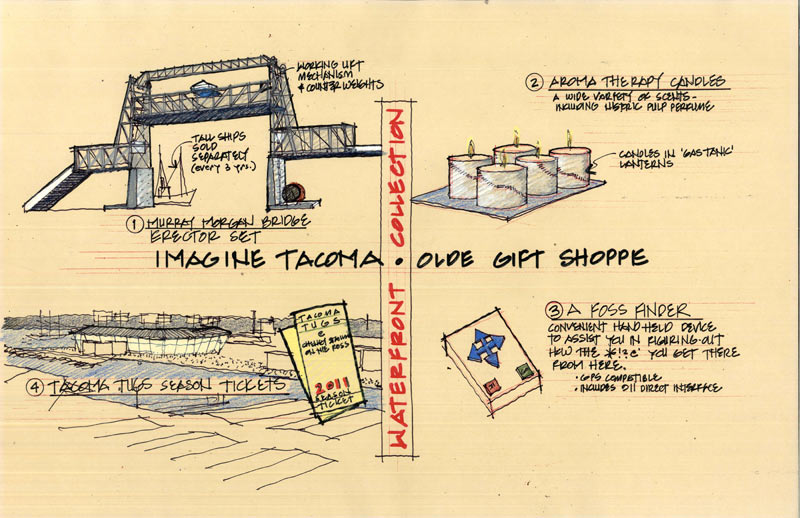 WORKING LIFT
MECHANISM
& COUNTER WEIGHTS
TALL SHIPS
SOLD
SEPARATELY
(every 3 yrs.)
1 MURRAY MORGAN BRIDGE
ERECTOR SET
2 AROMA THERAPY CANDLES
A WIDE VARIETY OF SCENTS-
INCLUDING HISTORIC PULP PERFUME
CANDLES IN 'GAS TANK'
LANTERNS
IMAGINE TACOMA • OLDE GIFT SHOPPE
WATERFRONT COLLECTION
3 A FOSS FINDER
CONVENIENT HAND-HELD DEVICE
TO ASSIST YOU IN FIGURING-OUT
HOW THE *!?@' YOU GET THERE
FROM HERE.
• GPS COMPATIBLE
• INCLUDES 911 DIRECT INTERFACE
4 TACOMA TUGS SEASON TICKETS
TACOMA
TUGS
@
ON THE FOSS
2011
SEASON
TICKET